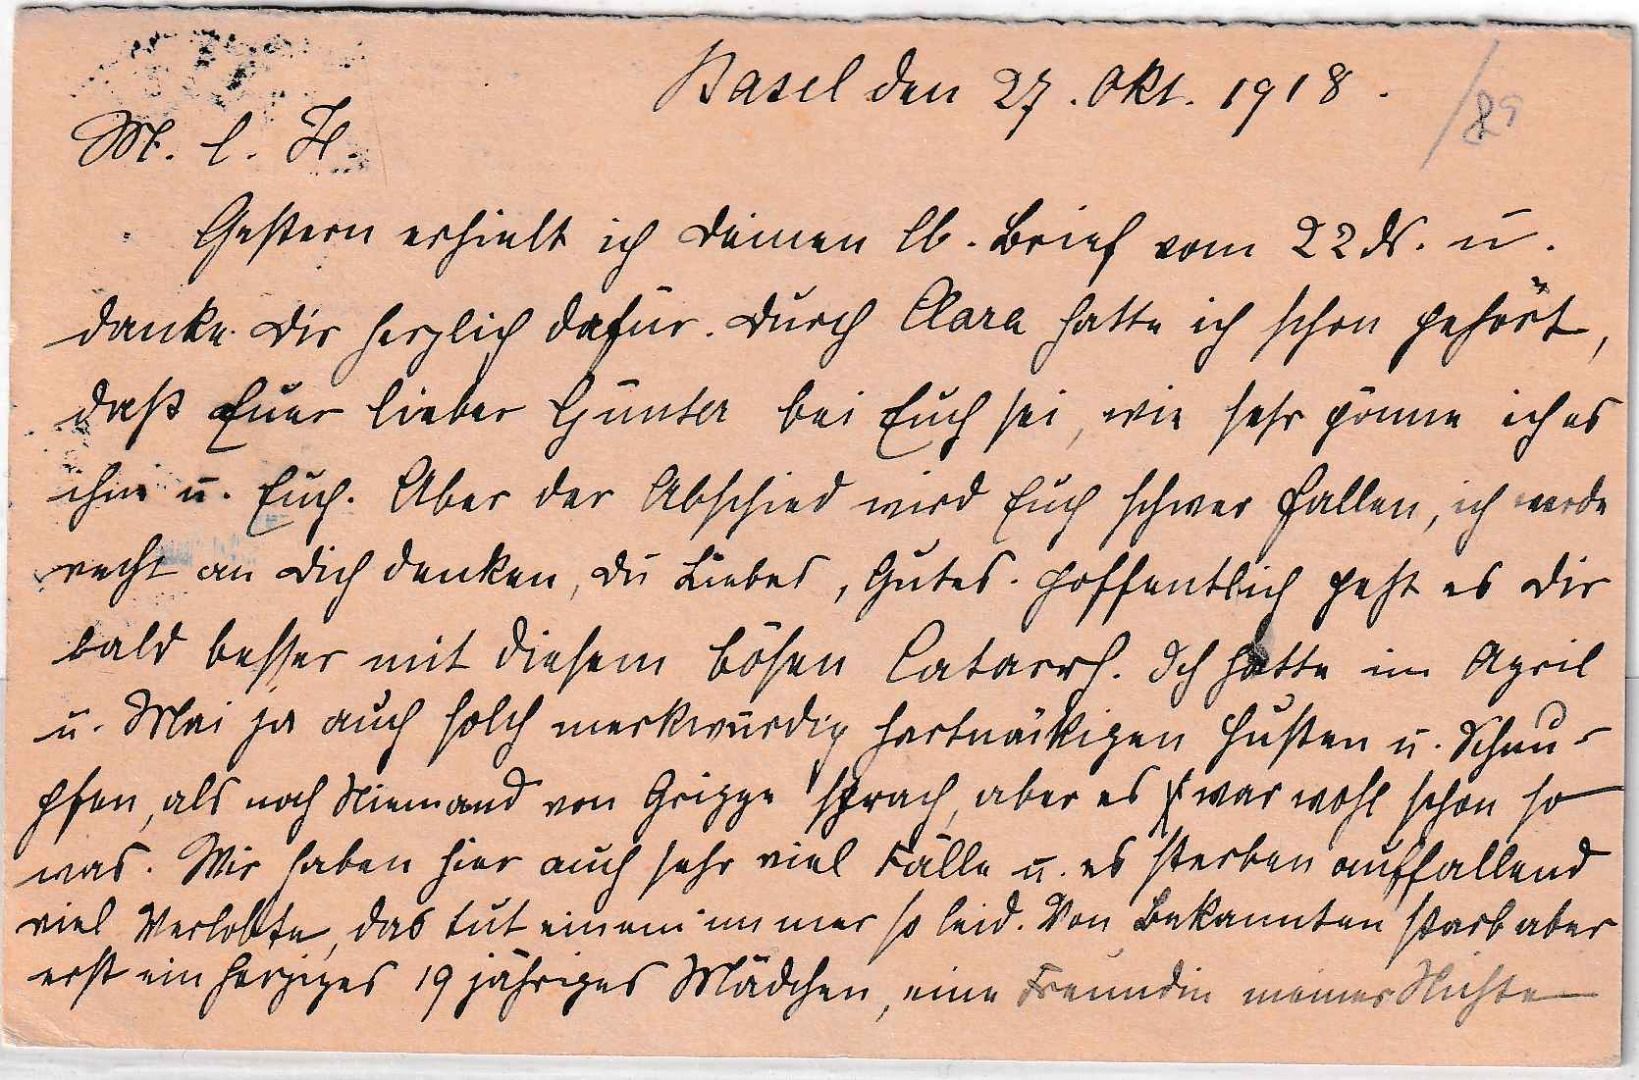 Basel den 27. Okt. 1918.
89
M. l. H.
Gestern erhielt ich Deinen lb. Brief vom 22 ds. u.
danke Dir herzlich dafür. Durch Clara hatte ich schon gehört,
daß Euer lieber Günter bei Euch sei, wie sehr gönne ich es
ihm u. Euch. Aber der Abschied wird Euch schwer fallen, ich werde
recht an Dich denken, Du Liebes, Gutes. Hoffentlich geht es Dir
bald besser mit diesem bösen Catarrh. Ich hatte im April
u. Mai ja auch solch merkwürdig hartnäckigen Husten u. Schnu-
pfen, als noch Niemand von Grippe sprach, aber es war wohl schon so
was. Wir haben hier auch sehr viel Fälle u. es sterben auffallend
viel Verlobte, das tut einem immer so leid. Von Bekannten starb aber
erst ein herziges 19 jähriges Mädchen, eine Freundin meiner Nichte